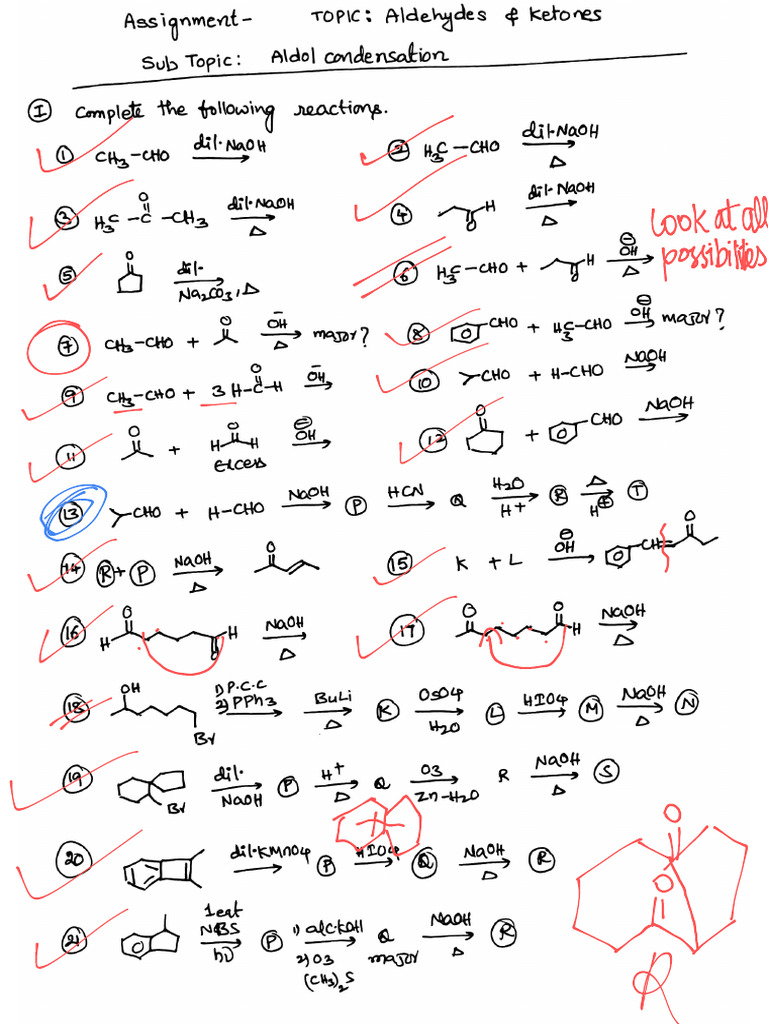 Assignment- TOPIC: Aldehydes & Ketones
Sub Topic: Aldol condensation
I Complete the following reactions.
1 CH3-CHO dil·NaOH
2 H3C-CHO dil·NaOH Δ
3 H3C-C-CH3 O dil·NaOH Δ
4 O H dil·NaOH Δ
Look at all
possibilites
5 O dil· Na2CO3, Δ
6 H3C-CHO + O H OH Δ
7 CH3-CHO + O OH Δ major?
8 CHO + H3C-CHO OH major?
9 CH3-CHO + 3 H-C-H O OH
10 CHO + H-CHO NaOH
11 O + H H O excess OH
12 O + CHO NaOH
13 CHO + H-CHO NaOH P HCN Q H2O H+ R Δ H+ T
14 R + P NaOH Δ O
15 K + L OH CH O
16 H O O H NaOH Δ
17 O O H NaOH Δ
18 OH Br 1) P.C.C 2) PPh3 BuLi Δ K OsO4 H2O L HIO4 M NaOH Δ N
19 Br dil· NaOH P H+ Δ Q O3 Zn-H2O R NaOH Δ S
20 dil·KMnO4 P HIO4 Q NaOH Δ R
O
O
R
21 1eat NBS hν P 1) alc·KOH 2) O3 (CH3)2S Q major NaOH Δ R